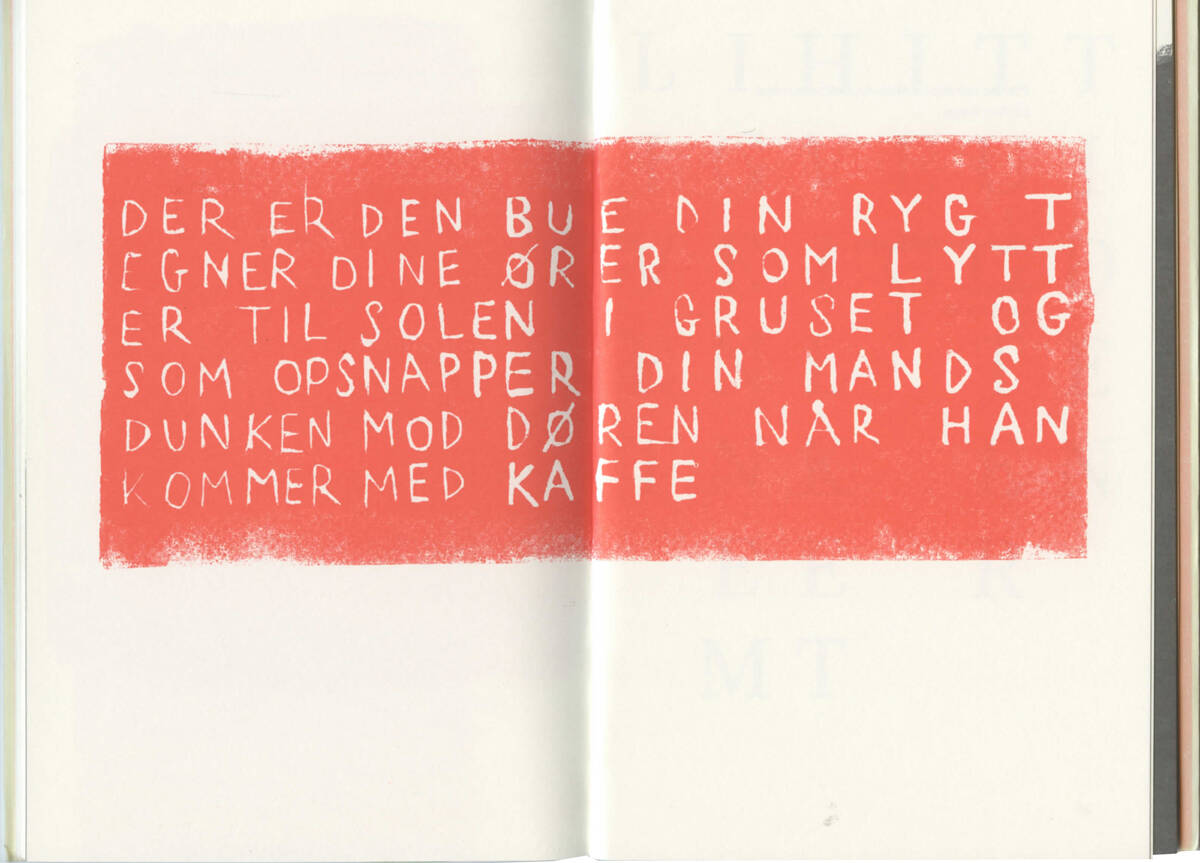 DER ER DEN BUE DIN RYG T
EGNER DINE ØRER SOM LYTT
ER TIL SOLEN I GRUSET OG
SOM OPSNAPPER DIN MANDS
DUNKEN MOD DØREN NÅR HAN
KOMMER MED KAFFE